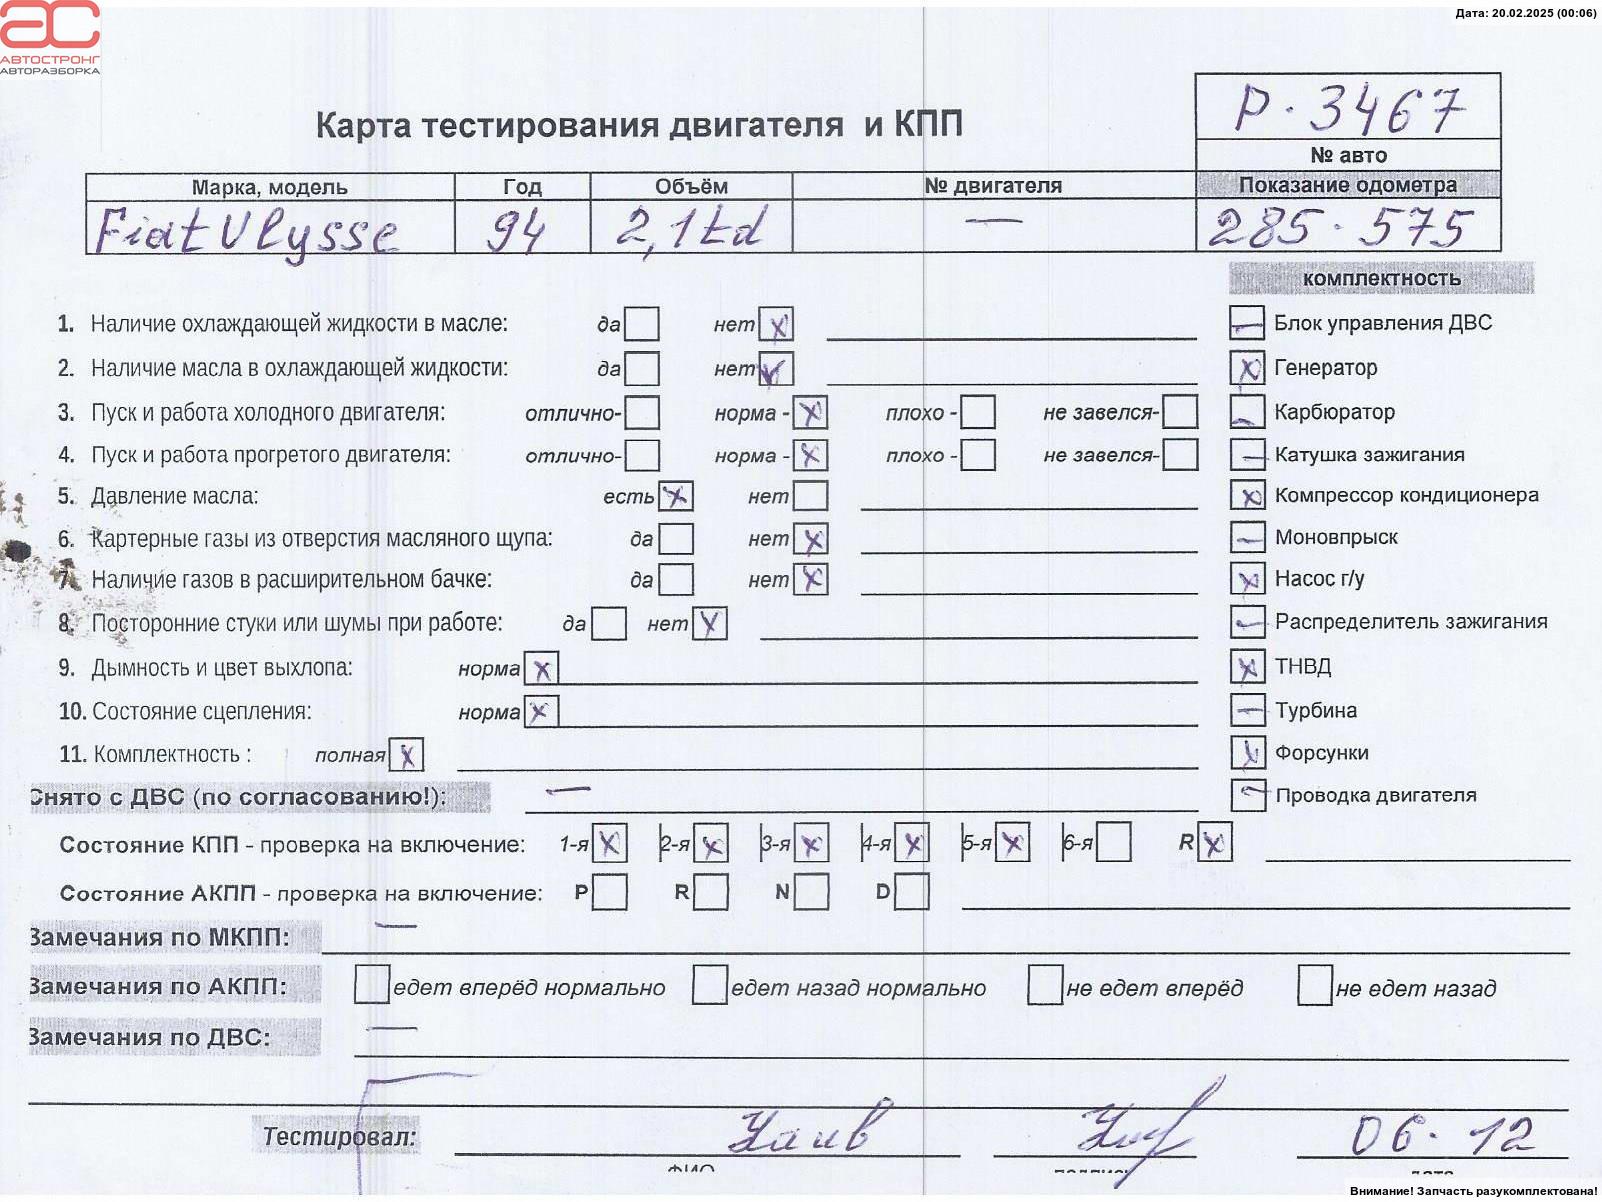 Дата: 20.02.2025 (00:06)
АС
АВТОСТРОНГ
АВТОРАЗБОРКА
Р·3467
Карта тестирования двигателя и КПП
№ авто
Марка, модель Год Объём № двигателя Показание одометра
Fiat Ulysse 94 2,1td — 285·575
комплектность
1. Наличие охлаждающей жидкости в масле: да нет x
Блок управления ДВС
2. Наличие масла в охлаждающей жидкости: да нет
Генератор
3. Пуск и работа холодного двигателя: отлично- норма - x плохо - не завелся-
Карбюратор
4. Пуск и работа прогретого двигателя: отлично- норма - x плохо - не завелся-
Катушка зажигания
5. Давление масла: есть x нет
Компрессор кондиционера
6. Картерные газы из отверстия масляного щупа: да нет x
Моновпрыск
7. Наличие газов в расширительном бачке: да нет x
Насос г/у
8. Посторонние стуки или шумы при работе: да нет x
Распределитель зажигания
9. Дымность и цвет выхлопа: норма x
ТНВД
10. Состояние сцепления: норма x
Турбина
11. Комплектность : полная x
Форсунки
Снято с ДВС (по согласованию!): —
Проводка двигателя
Состояние КПП - проверка на включение: 1-я x 2-я x 3-я x 4-я x 5-я x 6-я R x
Состояние АКПП - проверка на включение: P R N D
Замечания по МКПП: —
Замечания по АКПП: едет вперёд нормально едет назад нормально не едет вперёд не едет назад
Замечания по ДВС: —
Тестировал: 06·12
ФИО подпись дата
Внимание! Запчасть разукомплектована!